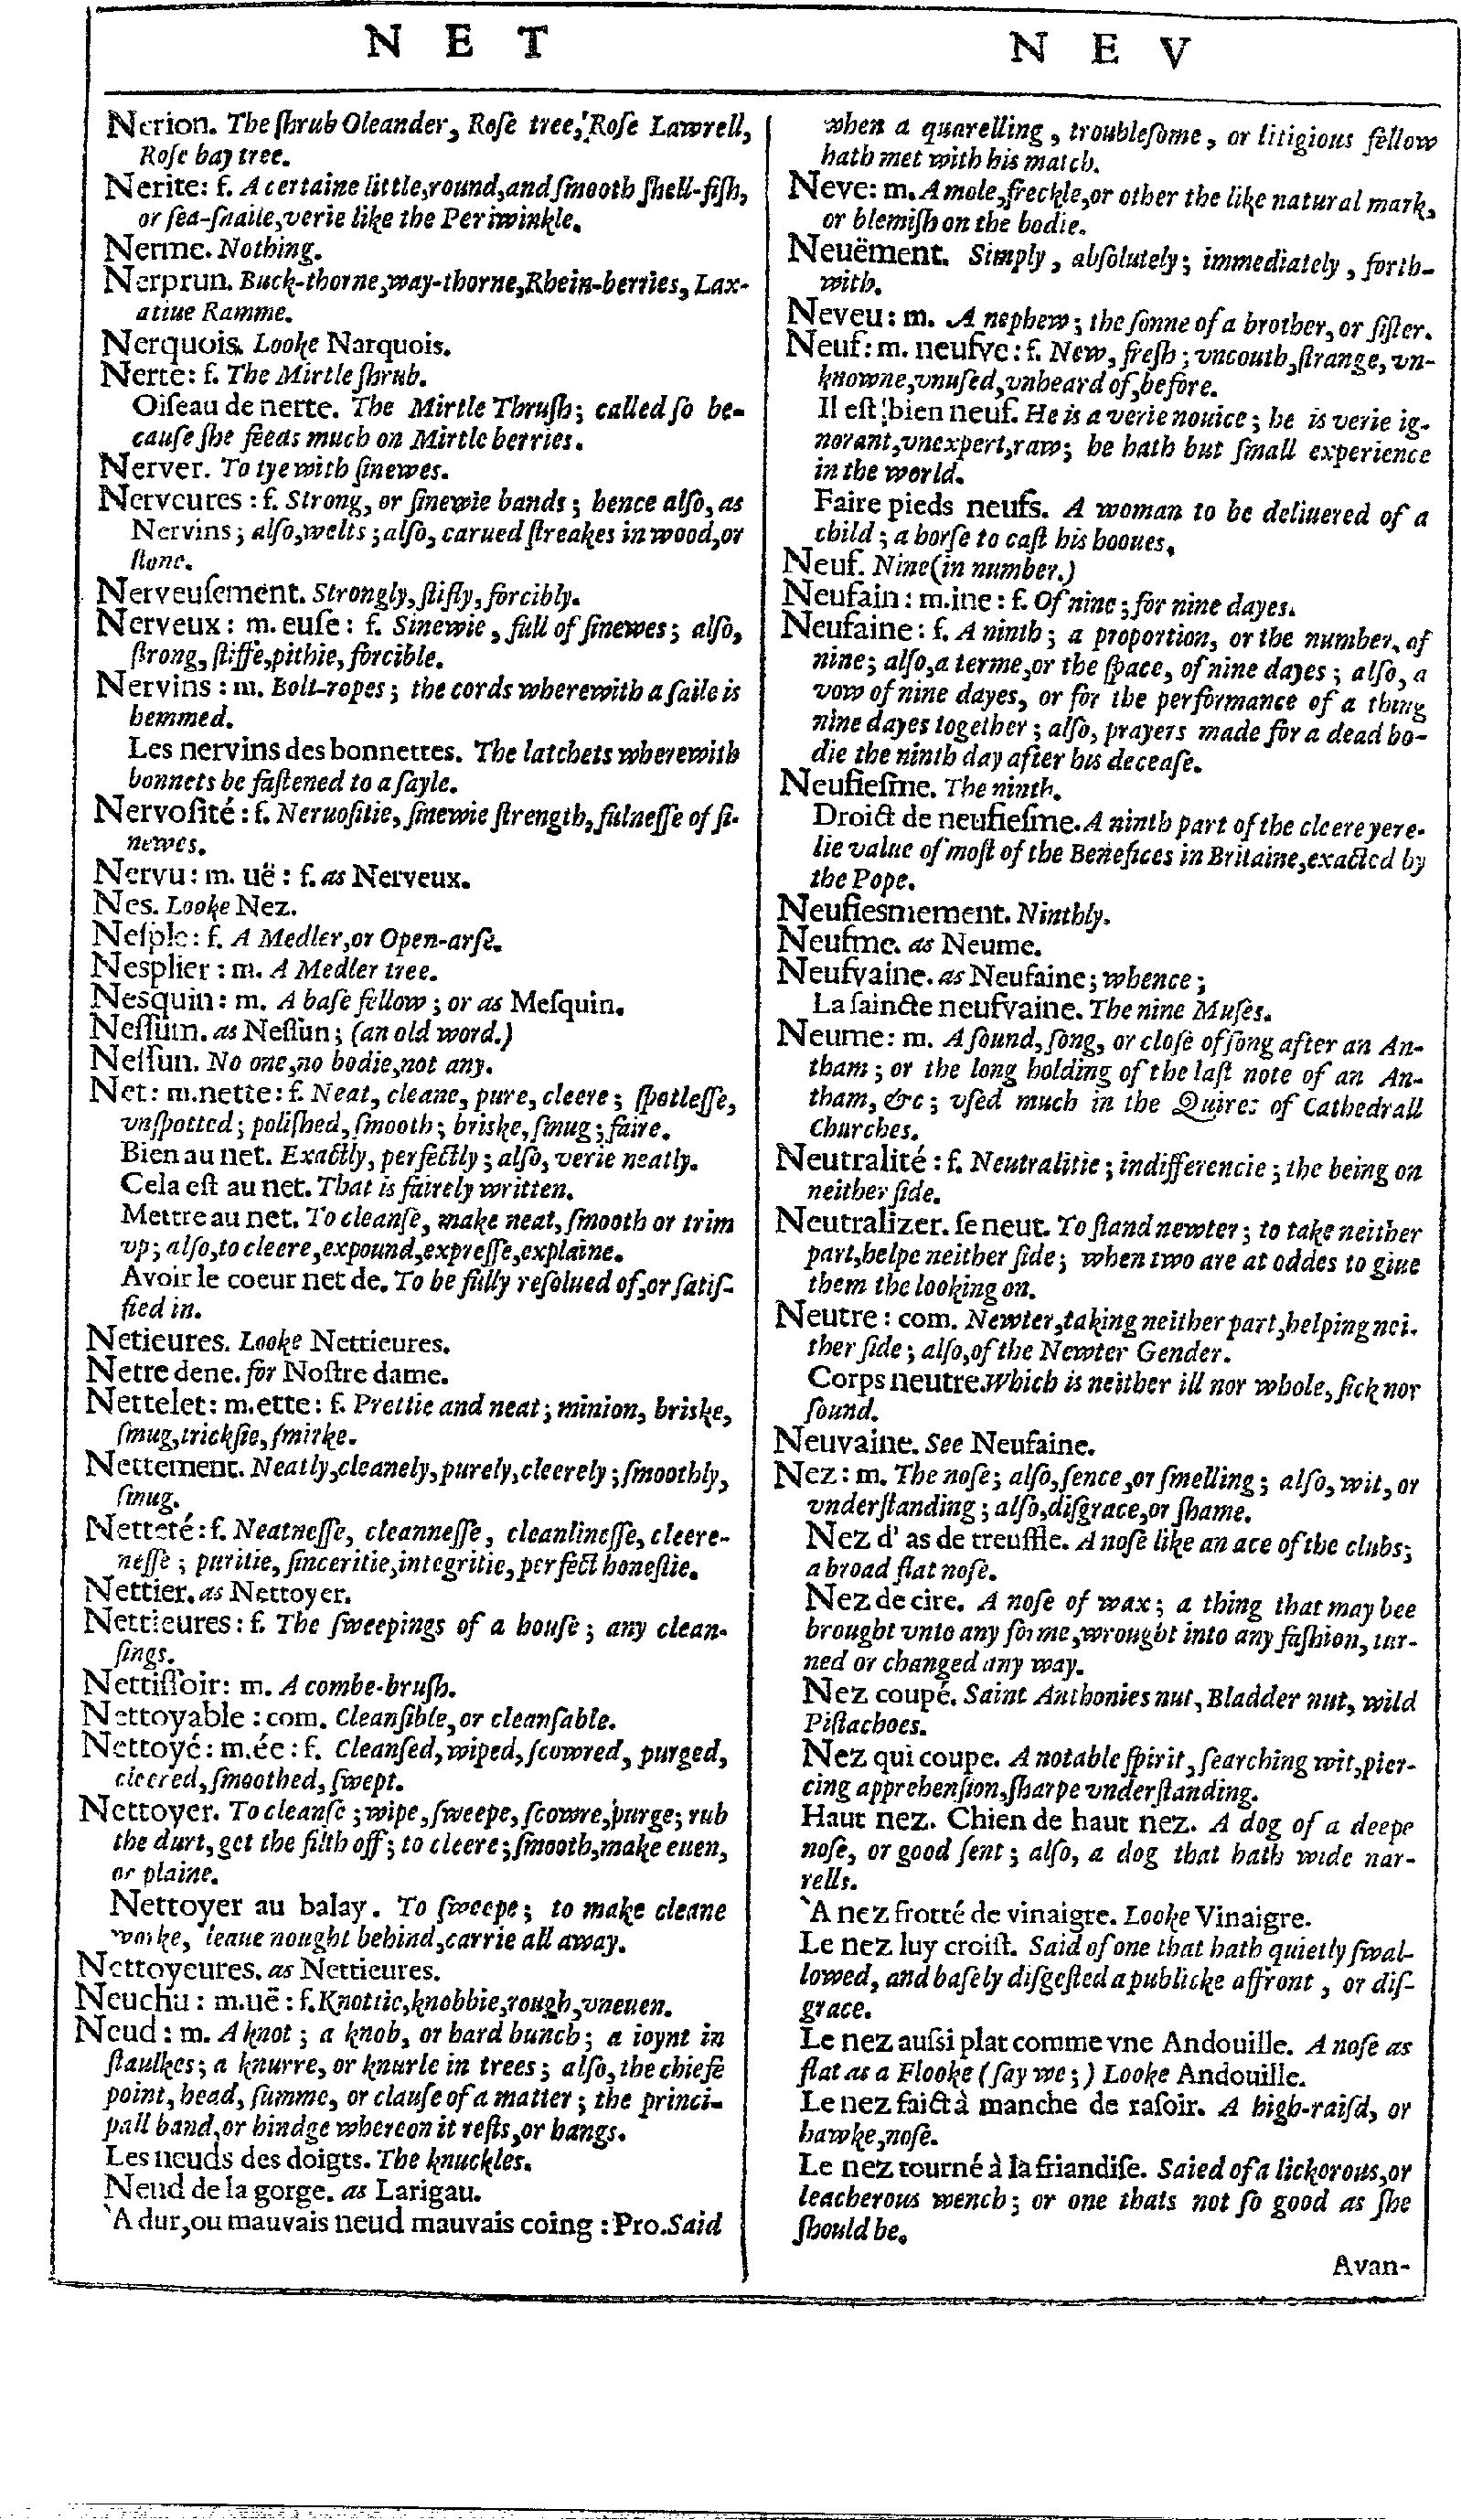 N E T
Nerion. The ſhrub Oleander, Roſe tree, Roſe Lawrell,
Roſe bay tree.
Nerite: f. A certaine little,round,and ſmooth ſhell-fiſh,
or ſea-ſnaile,verie like the Periwinkle.
Nerme. Nothing.
Nerprun. Buck-thorne,way-thorne,Rhein-berries, Lax-
atiue Ramme.
Nerquois. Looke Narquois.
Nerte: f. The Mirtle ſhrub.
Oiſeau de nerte. The Mirtle Thruſh; called ſo be-
cauſe ſhe feeds much on Mirtle berries.
Nerver. To tye with ſinewes.
Nerveures : f. Strong, or ſinewie bands; hence alſo, as
Nervins; alſo,welts ;alſo, carued ſtreakes in wood,or
ſtone.
Nerveuſement. Strongly, ſtifly, forcibly.
Nerveux: m. euſe: f. Sinewie, full of ſinewes; alſo,
ſtrong, ſtiffe,pithie, forcible.
Nervins : m. Bolt-ropes; the cords wherewith a ſaile is
hemmed.
Les nervins des bonnettes. The latchets wherewith
bonnets be faſtened to a ſayle.
Nervoſité: f. Neruoſitie, ſinewie ſtrength, fulneſſe of ſi-
newes.
Nervu: m. uë: f. as Nerveux.
Nes. Looke Nez.
Neſple: f. A Medler,or Open-arſe.
Nesplier : m. A Medler tree.
Nesquin: m. A baſe fellow; or as Meſquin.
Neſſum. as Neſſun; (an old word.)
Neſſun. No one,no bodie,not any.
Net: m.nette: f. Neat, cleane, pure, cleere; ſpotleſſe,
vnſpotted; poliſhed, ſmooth; briske, ſmug; faire.
Bien au net. Exactly, perfectly; alſo, verie neatly.
Cela eſt au net. That is fairely written.
Mettre au net. To cleanſe, make neat, ſmooth or trim
vp; alſo,to cleere,expound,expreſſe,explaine.
Avoir le coeur net de. To be fully reſolued of,or ſatiſ-
fied in.
Netieures. Looke Nettieures.
Netre dene. for Noſtre dame.
Nettelet: m.ette: f. Prettie and neat; minion, briske,
ſmug,trickſie, ſmirke.
Nettement. Neatly,cleanely,purely,cleerely; ſmoothly,
ſmug.
Netteté: f. Neatneſſe, cleanneſſe, cleanlineſſe, cleere-
neſſe; puritie, ſinceritie,integritie,perfect honeſtie.
Nettier. as Nettoyer.
Nettieures: f. The ſweepings of a houſe; any clean-
ſings.
Nettiſſoir: m. A combe-bruſh.
Nettoyable : com. Cleanſible, or cleanſable.
Nettoyé: m.ée: f. Cleanſed,wiped, ſcowred, purged,
cleered, ſmoothed, ſwept.
Nettoyer. To cleanſe; wipe, ſweepe, ſcowre, purge; rub
the durt, get the filth off; to cleere; ſmooth,make euen,
or plaine.
Nettoyer au balay. To ſweepe; to make cleane
worke, leaue nought behind,carrie all away.
Nettoyeures. as Nettieures.
Neuchu: m.uë: f. Knottie,knobbie,rough,vneuen.
Neud: m. A knot; a knob, or hard bunch; a ioynt in
ſtaulkes; a knurre, or knurle in trees; alſo, the chiefe
point, head, ſumme, or clauſe of a matter; the princi-
pall band,or hindge whereon it reſts,or hangs.
Les neuds des doigts. The knuckles.
Neud de la gorge. as Larigau.
`A dur,ou mauvais neud mauvais coing : Pro. Said
N E V
when a quarelling, troubleſome, or litigious fellow
hath met with his match.
Neve: m. A mole,freckle,or other the like natural mark,
or blemiſh on the bodie.
Neuëment. Simply, abſolutely; immediately, forth-
with.
Neveu: m. A nephew; the ſonne of a brother, or ſiſter.
Neuf: m. neufve: f. New, freſh; vncouth,ſtrange, vn-
knowne,vnuſed,vnheard of,before.
Il eſt bien neuf. He is a verie nouice; he is verie ig-
norant,vnexpert,raw; he hath but ſmall experience
in the world.
Faire pieds neufs. A woman to be deliuered of a
child; a horſe to caſt his hooues.
Neuf. Nine (in number.)
Neufain: m.ine: f. Of nine; for nine dayes.
Neufaine: f. A ninth; a proportion, or the number, of
nine; alſo,a terme,or the ſpace, of nine dayes; alſo, a
vow of nine dayes, or for the performance of a thing
nine dayes together; alſo, prayers made for a dead bo-
die the ninth day after his deceaſe.
Neufieſme. The ninth.
Droict de neufieſme. A ninth part of the cleere yere-
lie value of moſt of the Benefices in Britaine,exacted by
the Pope.
Neufiesmement. Ninthly.
Neufme. as Neume.
Neufvaine. as Neufaine; whence;
La ſaincte neufvaine. The nine Muſes.
Neume: m. A ſound, ſong, or cloſe of ſong after an An-
tham; or the long holding of the laſt note of an An-
tham, &c; vſed much in the Quires of Cathedrall
Churches.
Neutralité : f. Neutralitie; indifferencie; the being on
neither ſide.
Neutralizer. ſe neut. To ſtand newter; to take neither
part,helpe neither ſide; when two are at oddes to giue
them the looking on.
Neutre: com. Newter,taking neither part,helping nei-
ther ſide; alſo,of the Newter Gender.
Corps neutre. Which is neither ill nor whole, ſick nor
ſound.
Neuvaine. See Neufaine.
Nez: m. The noſe; alſo, ſence,or ſmelling; alſo, wit, or
vnderſtanding; alſo,diſgrace,or ſhame.
Nez d' as de treuffle. A noſe like an ace of the clubs;
a broad flat noſe.
Nez de cire. A noſe of wax; a thing that may bee
brought vnto any forme,wrought into any faſhion, tur-
ned or changed any way.
Nez coupé. Saint Anthonies nut, Bladder nut, wild
Piſtachoes.
Nez qui coupe. A notable ſpirit, ſearching wit,pier-
cing apprehenſion,ſharpe vnderſtanding.
Haut nez. Chien de haut nez. A dog of a deepe
noſe, or good ſent; alſo, a dog that hath wide nar-
rells.
`A nez frotté de vinaigre. Looke Vinaigre.
Le nez luy croiſt. Said of one that hath quietly ſwal-
lowed, and baſely diſgeſted a publicke affront, or diſ-
grace.
Le nez auſsi plat comme vne Andouille. A noſe as
flat as a Flooke (ſay we;) Looke Andouille.
Le nez faict à manche de raſoir. A high-raiſd, or
hawke,noſe.
Le nez tourné à la friandiſe. Saied of a lickorous,or
leacherous wench; or one thats not ſo good as ſhe
ſhould be.
Avan-